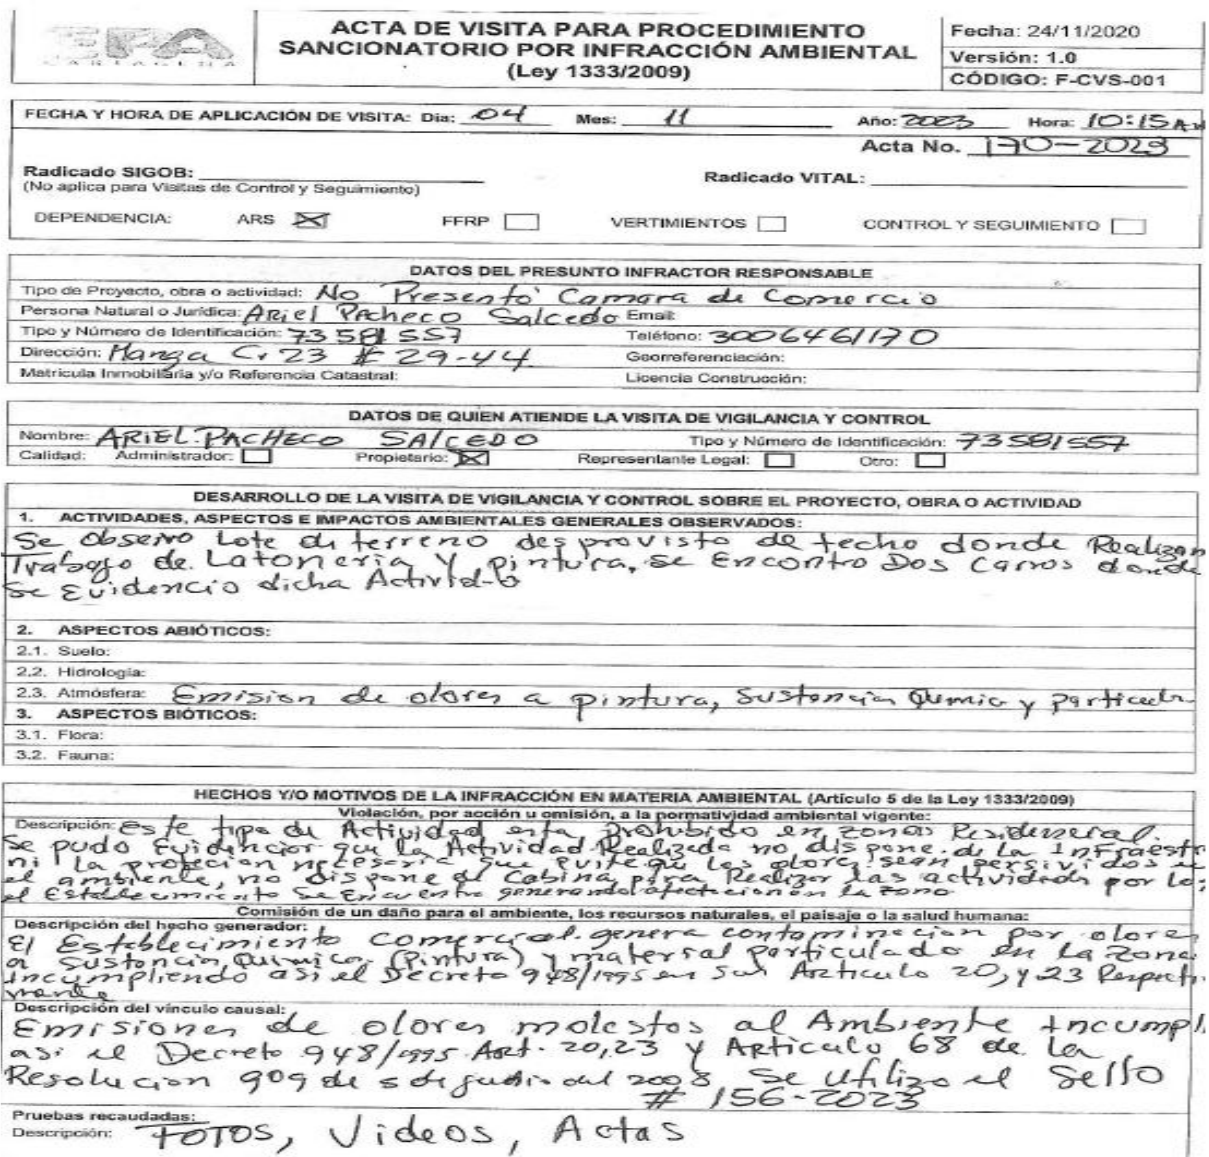 EPA
CARTAGENA
ACTA DE VISITA PARA PROCEDIMIENTO
SANCIONATORIO POR INFRACCIÓN AMBIENTAL
(Ley 1333/2009)
Fecha: 24/11/2020
Versión: 1.0
CÓDIGO: F-CVS-001
FECHA Y HORA DE APLICACIÓN DE VISITA: Dia: 04 Mes: 11 Año: 2023 Hora: 10:15 AM
Acta No. 170-2023
Radicado SIGOB:
(No aplica para Visitas de Control y Seguimiento)
Radicado VITAL:
DEPENDENCIA: ARS FFRP VERTIMIENTOS CONTROL Y SEGUIMIENTO
DATOS DEL PRESUNTO INFRACTOR RESPONSABLE
Tipo de Proyecto, obra o actividad: No Presentó Camara de Comercio
Persona Natural o Jurídica: Ariel Pacheco Salcedo Email:
Tipo y Número de Identificación: 73581557 Teléfono: 3006461170
Dirección: Manga Cr 23 # 29-44 Georreferenciación:
Matricula Inmobiliaria y/o Referencia Catastral: Licencia Construcción:
DATOS DE QUIEN ATIENDE LA VISITA DE VIGILANCIA Y CONTROL
Nombre: ARIEL PACHECO SALCEDO Tipo y Número de Identificación: 73581557
Calidad: Administrador: Propietario: Representante Legal: Otro:
DESARROLLO DE LA VISITA DE VIGILANCIA Y CONTROL SOBRE EL PROYECTO, OBRA O ACTIVIDAD
1. ACTIVIDADES, ASPECTOS E IMPACTOS AMBIENTALES GENERALES OBSERVADOS:
Se observo Lote de terreno desprovisto de techo donde Realizan
Trabajo de Latoneria y pintura, se Encontro Dos Carros donde
Se Evidencio dicha
2. ASPECTOS ABIÓTICOS:
2.1. Suelo:
2.2. Hidrología:
2.3. Atmósfera: Emision de olores a pintura, Sustancia Quimic y
3. ASPECTOS BIÓTICOS:
3.1. Flora:
3.2. Fauna:
HECHOS Y/O MOTIVOS DE LA INFRACCIÓN EN MATERIA AMBIENTAL (Artículo 5 de la Ley 1333/2009)
Violación, por acción u omisión, a la normatividad ambiental vigente:
Descripción: Este tipo de Actividad esta prohibido en zonas
Se pudo Evidenciar que la Actividad Realizada no dispone de la Infraestr
ni la protecion necesaria que evite que los olores sean persividos
el ambiente, no dispone de Cabina para Realizar las actividades por Lo
el Establecimiento Se Encuentra generando afectacion en la zona
Comisión de un daño para el ambiente, los recursos naturales, el paisaje o la salud humana:
Descripción del hecho generador:
El Establecimiento comercial genera contaminacion por olores
a Sustancia Quimica (Pintura) y material particulado en la zona
Incumpliendo asi el Decreto 948/1995 en sus Articulo 20, y 23
Descripción del vínculo causal:
Emisiones de olores molestos al Ambiente Incumpl
asi el Decreto 948/1995 Art. 20,23 y Articulo 68 de la
Resolucion 909 de 5 de del 2008, Se utilizo el Sello
# 156-2023
Pruebas recaudadas:
Descripción: FOTOS, Videos, Actas